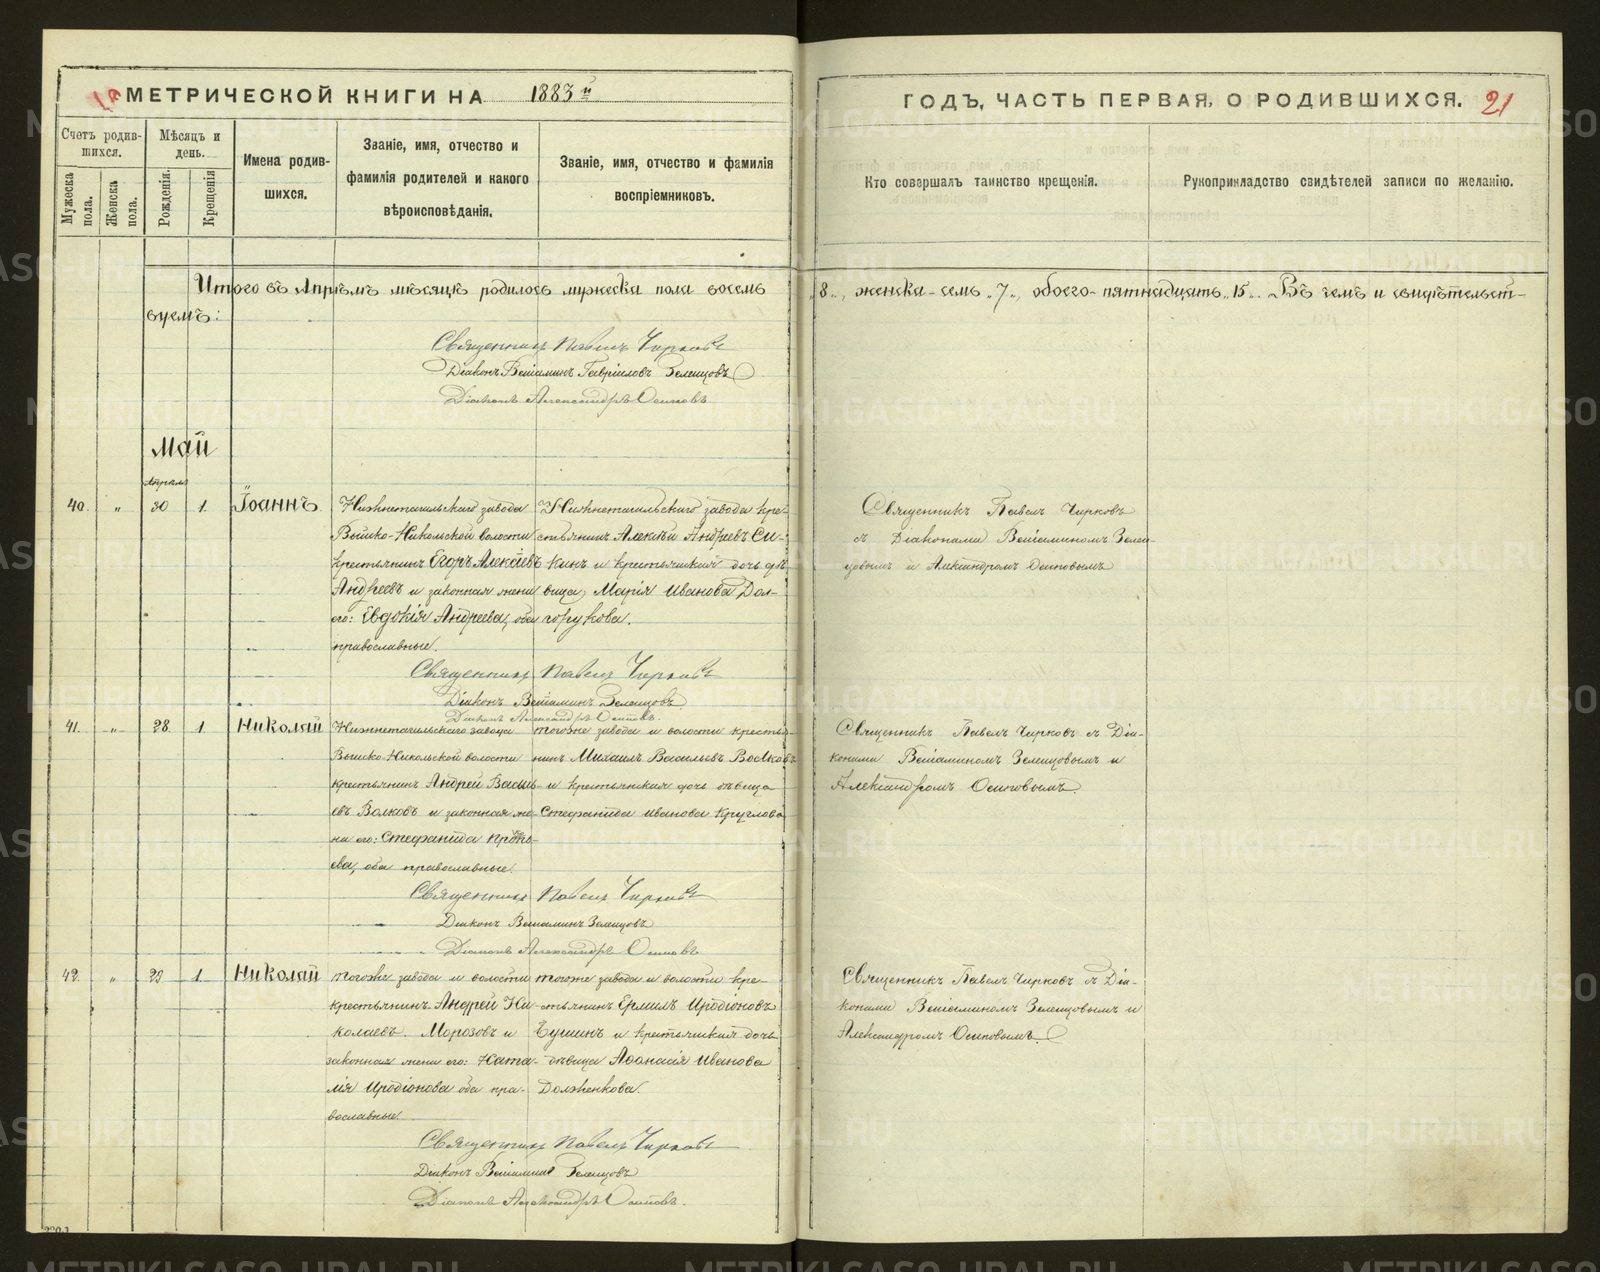 МЕТРИЧЕСКОЙ КНИГИ НА 1883й ГОДЪ, ЧАСТЬ ПЕРВАЯ, О РОДИВШИХСЯ. 21
Счетъ родив-
шихся.
Мужеска пола.
Женска пола.
Мѣсяцъ и
день.
Рожденія.
Крещенія
Имена родив-
шихся.
Званіе, имя, отчество и
фамилія родителей и какого
вѣроисповѣданія.
Званіе, имя, отчество и фамилія
воспріемниковъ.
Кто совершалъ таинство крещенія.
Рукоприкладство свидѣтелей записи по желанію.
Итого въ Апрѣлѣ мѣсяцѣ родилось мужеска пола восемь „8„, женска - семь „7„, обоего - пятнадцать „15„. Въ чемъ и свидѣтельст-
вуемъ:
Священникъ Павелъ Чирковъ
Діаконъ Веніаминъ Гавріиловъ Зеленцовъ
Діаконъ Александръ Осиповъ
Май
Апрѣля
40. „ 30 1. Іоаннъ
Нижнетагильскаго завода
Выйско-Никольской волости
крестьянинъ Егоръ Алексѣевъ
Андреевъ и законная жена
его: Евдокія Андреева, оба
православные.
Нижнетагильскаго завода кре-
стьянинъ Алексѣй Андреевъ Си-
кинъ и крестьянская дочь дѣ-
вица Марія Иванова Дол-
горукова.
Священникъ Павелъ Чирковъ
съ Діаконами Веніаминомъ Зелен-
цовымъ и Александромъ Осиповымъ
Священникъ Павелъ Чирковъ
Діаконъ Веніаминъ Зеленцовъ
Діаконъ Александръ Осиповъ.
41. „ 28. 1. Николай
Нижнетагильскаго завода
Выйско-Никольской волости
крестьянинъ Андрей Василь-
евъ Волковъ и законная же-
на его: Стефанида Прокопь-
ева, оба православные.
тогоже завода и волости кресть-
янинъ Михаилъ Васильевъ Волковъ
и крестьянская дочь дѣвица
Стефанида Иванова Круглова
Священникъ Павелъ Чирковъ съ Діа-
конами Веніаминомъ Зеленцовымъ и
Александромъ Осиповымъ
Священникъ Павелъ Чирковъ
Діаконъ Веніаминъ Зеленцовъ
Діаконъ Александръ Осиповъ
42. „ 29 1. Николай
тогоже завода и волости
крестьянинъ Андрей Ни-
колаевъ Морозовъ и
законная жена его: Ната-
лія Иродіонова оба пра-
вославные.
тогоже завода и волости кре-
стьянинъ Ермилъ Иродіоновъ
и крестьянская дочь
дѣвица Афанасія Иванова
Долженкова.
Священникъ Павелъ Чирковъ съ Діа-
конами Веніаминомъ Зеленцовымъ и
Александромъ Осиповымъ.
Священникъ Павелъ Чирковъ
Діаконъ Веніаминъ Зеленцовъ
Діаконъ Александръ Осиповъ.
METRIKI.GASO-URAL.RU